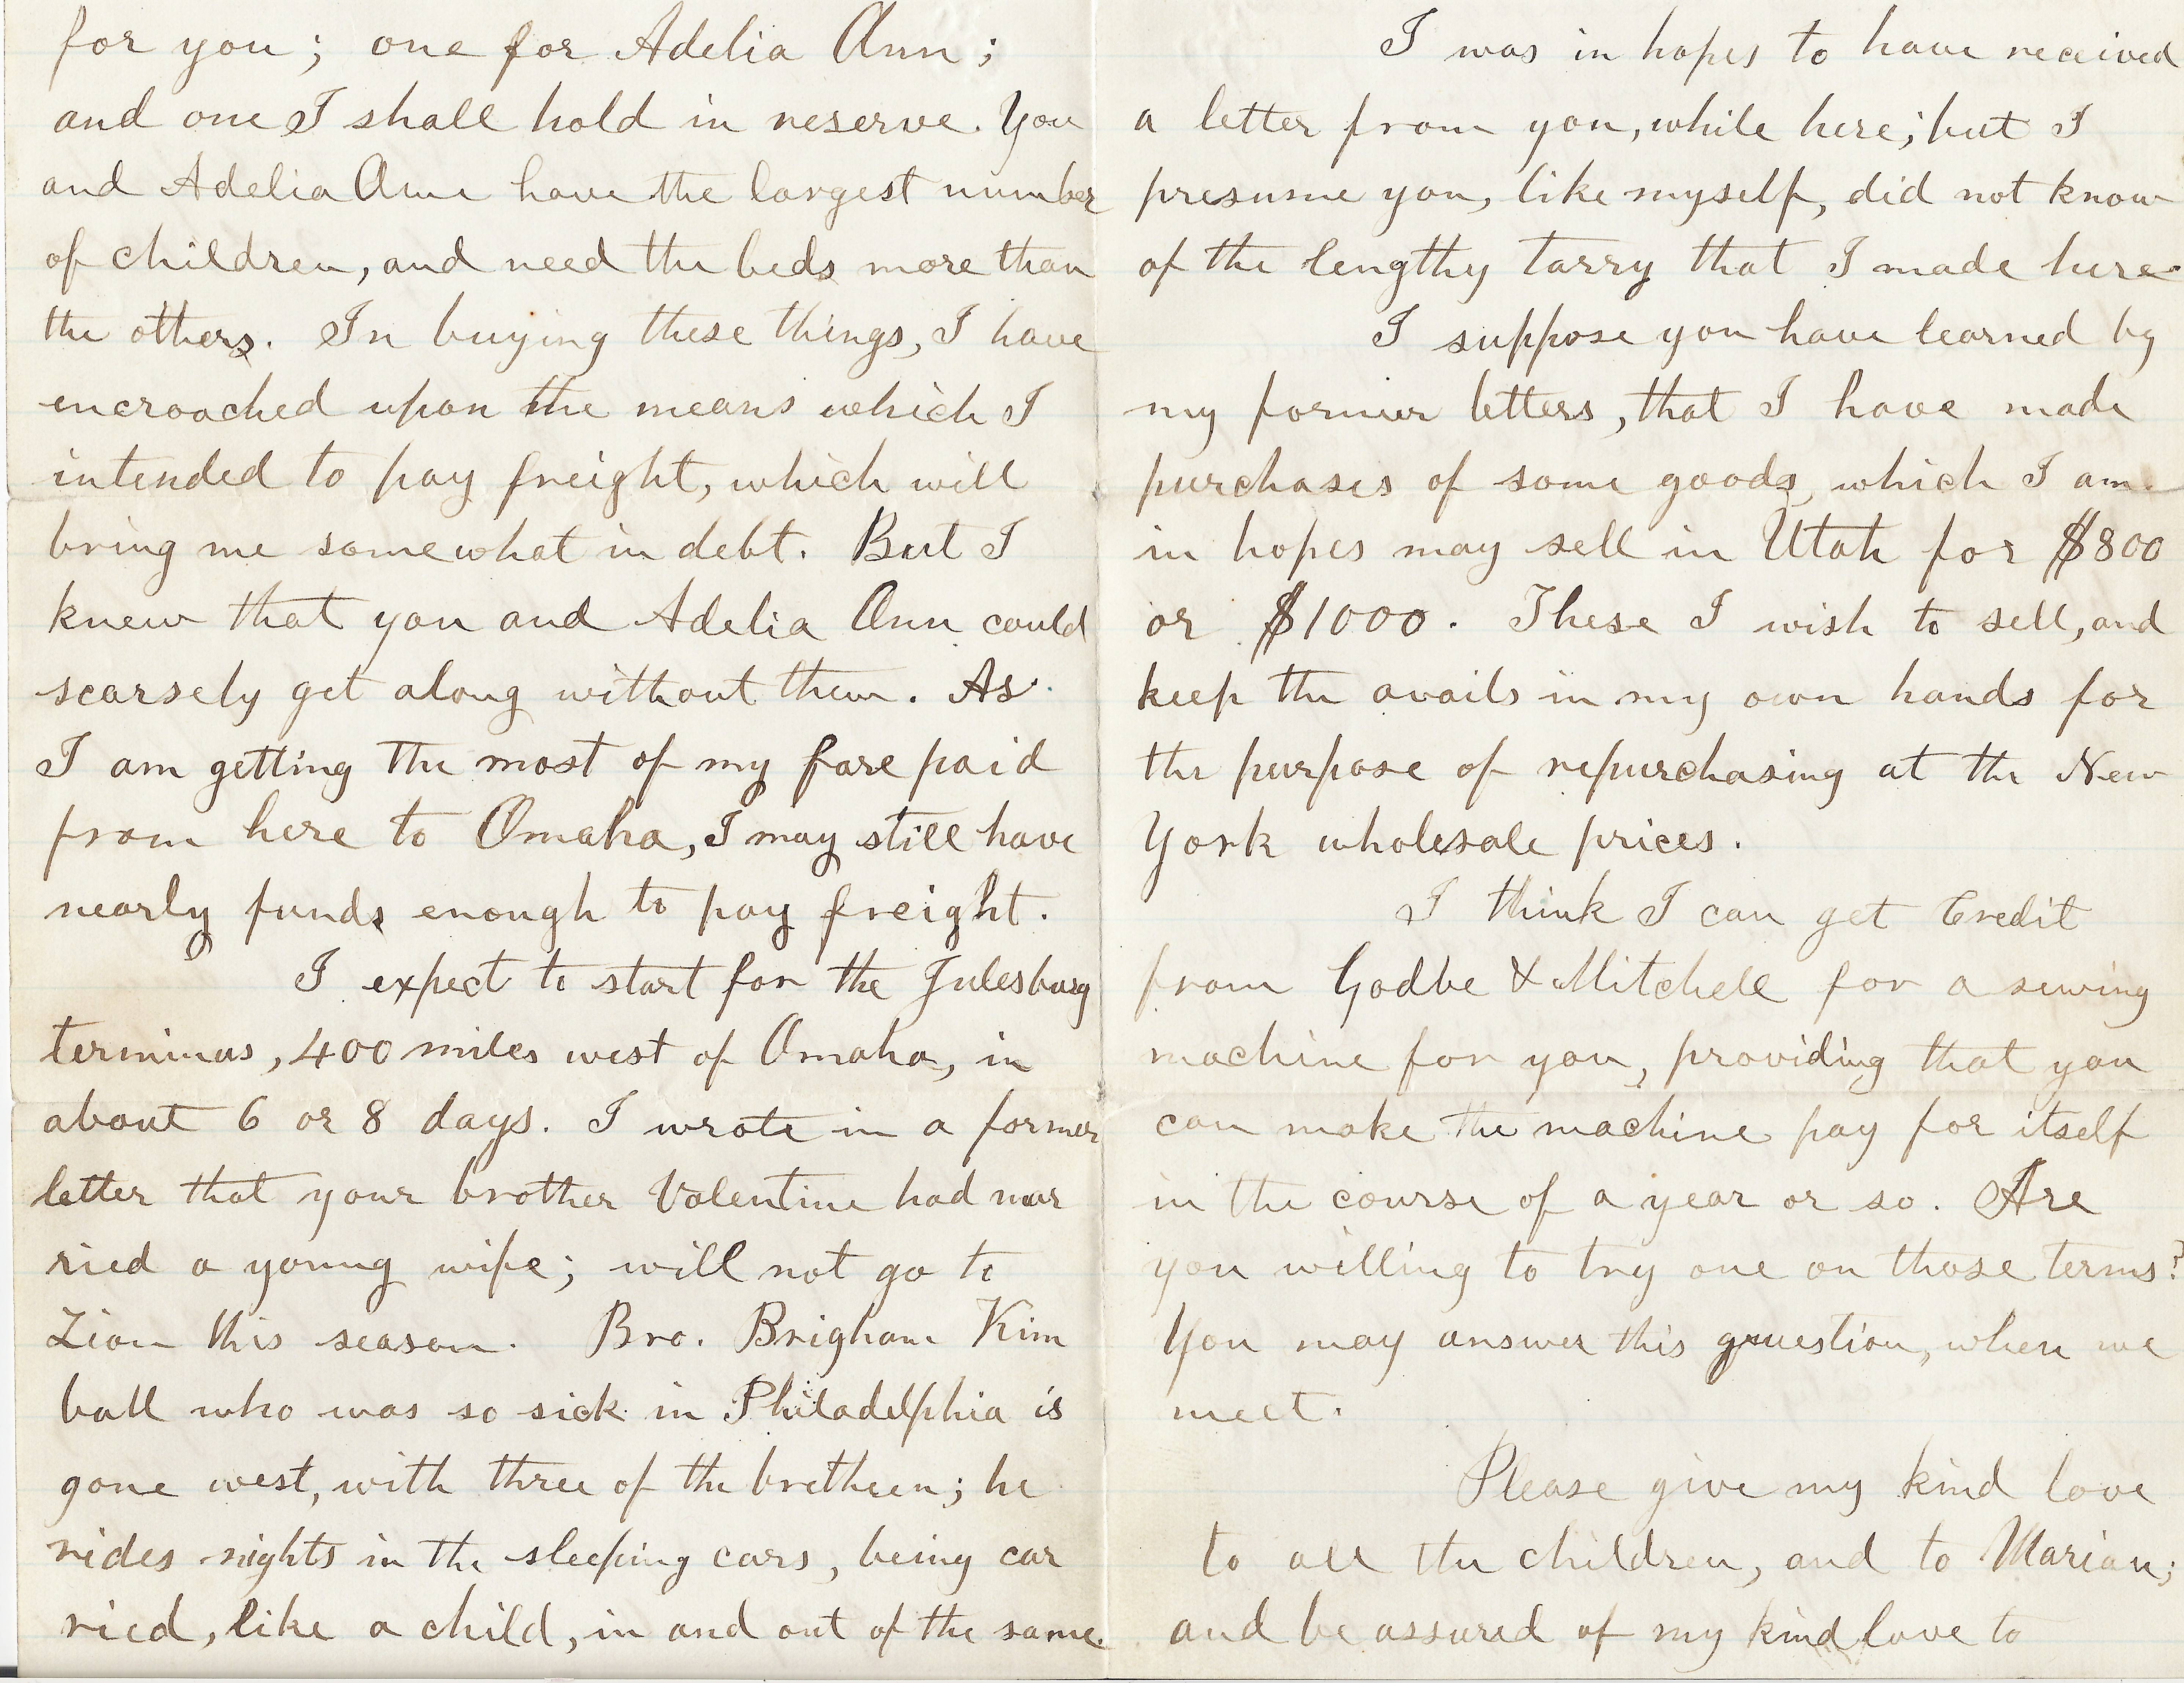 for you; one for Adelia Ann;
and one I shall hold in reserve. You
and Adelia Ann have the largest number
of children, and need the beds more than
the others. In buying these things, I have
encroached upon the means which I
intended to pay freight, which will
bring me somewhat in debt. But I
knew that you and Adelia Ann could
scarsely get along without them. As
I am getting the most of my fare paid
from here to Omaha, I may still have
nearly funds enough to pay freight.
I expect to start for the Julesburg
terminus, 400 miles west of Omaha, in
about 6 or 8 days. I wrote in a former
letter that your brother Valentine had mar
ried a young wife; will not go to
Zion this season. Bro. Brigham Kim
ball who was so sick in Philadelphia is
gone west, with three of the bretheen; he
rides nights in the sleeping cars, being car
ried, like a child, in and out of the same.
I was in hopes to have received
a letter from you, while here; but I
presume you, like myself, did not know
of the lengthy tarry that I made here
I suppose you have learned by
my former letters, that I have made
purchases of some goods, which I am
in hopes may sell in Utah for $800
or $1000. These I wish to sell, and
keep the avails in my own hands for
the purpose of repurchasing at the New
York wholesale prices.
I think I can get Credit
from Godbe & Mitchell for a sewing
machine for you, providing that you
can make the machine pay for itself
in the course of a year or so. Are
you willing to try one on those terms?
You may answer this question, when we
meet.
Please give my kind love
to all the children, and to Marian;
and be assured of my kind love to